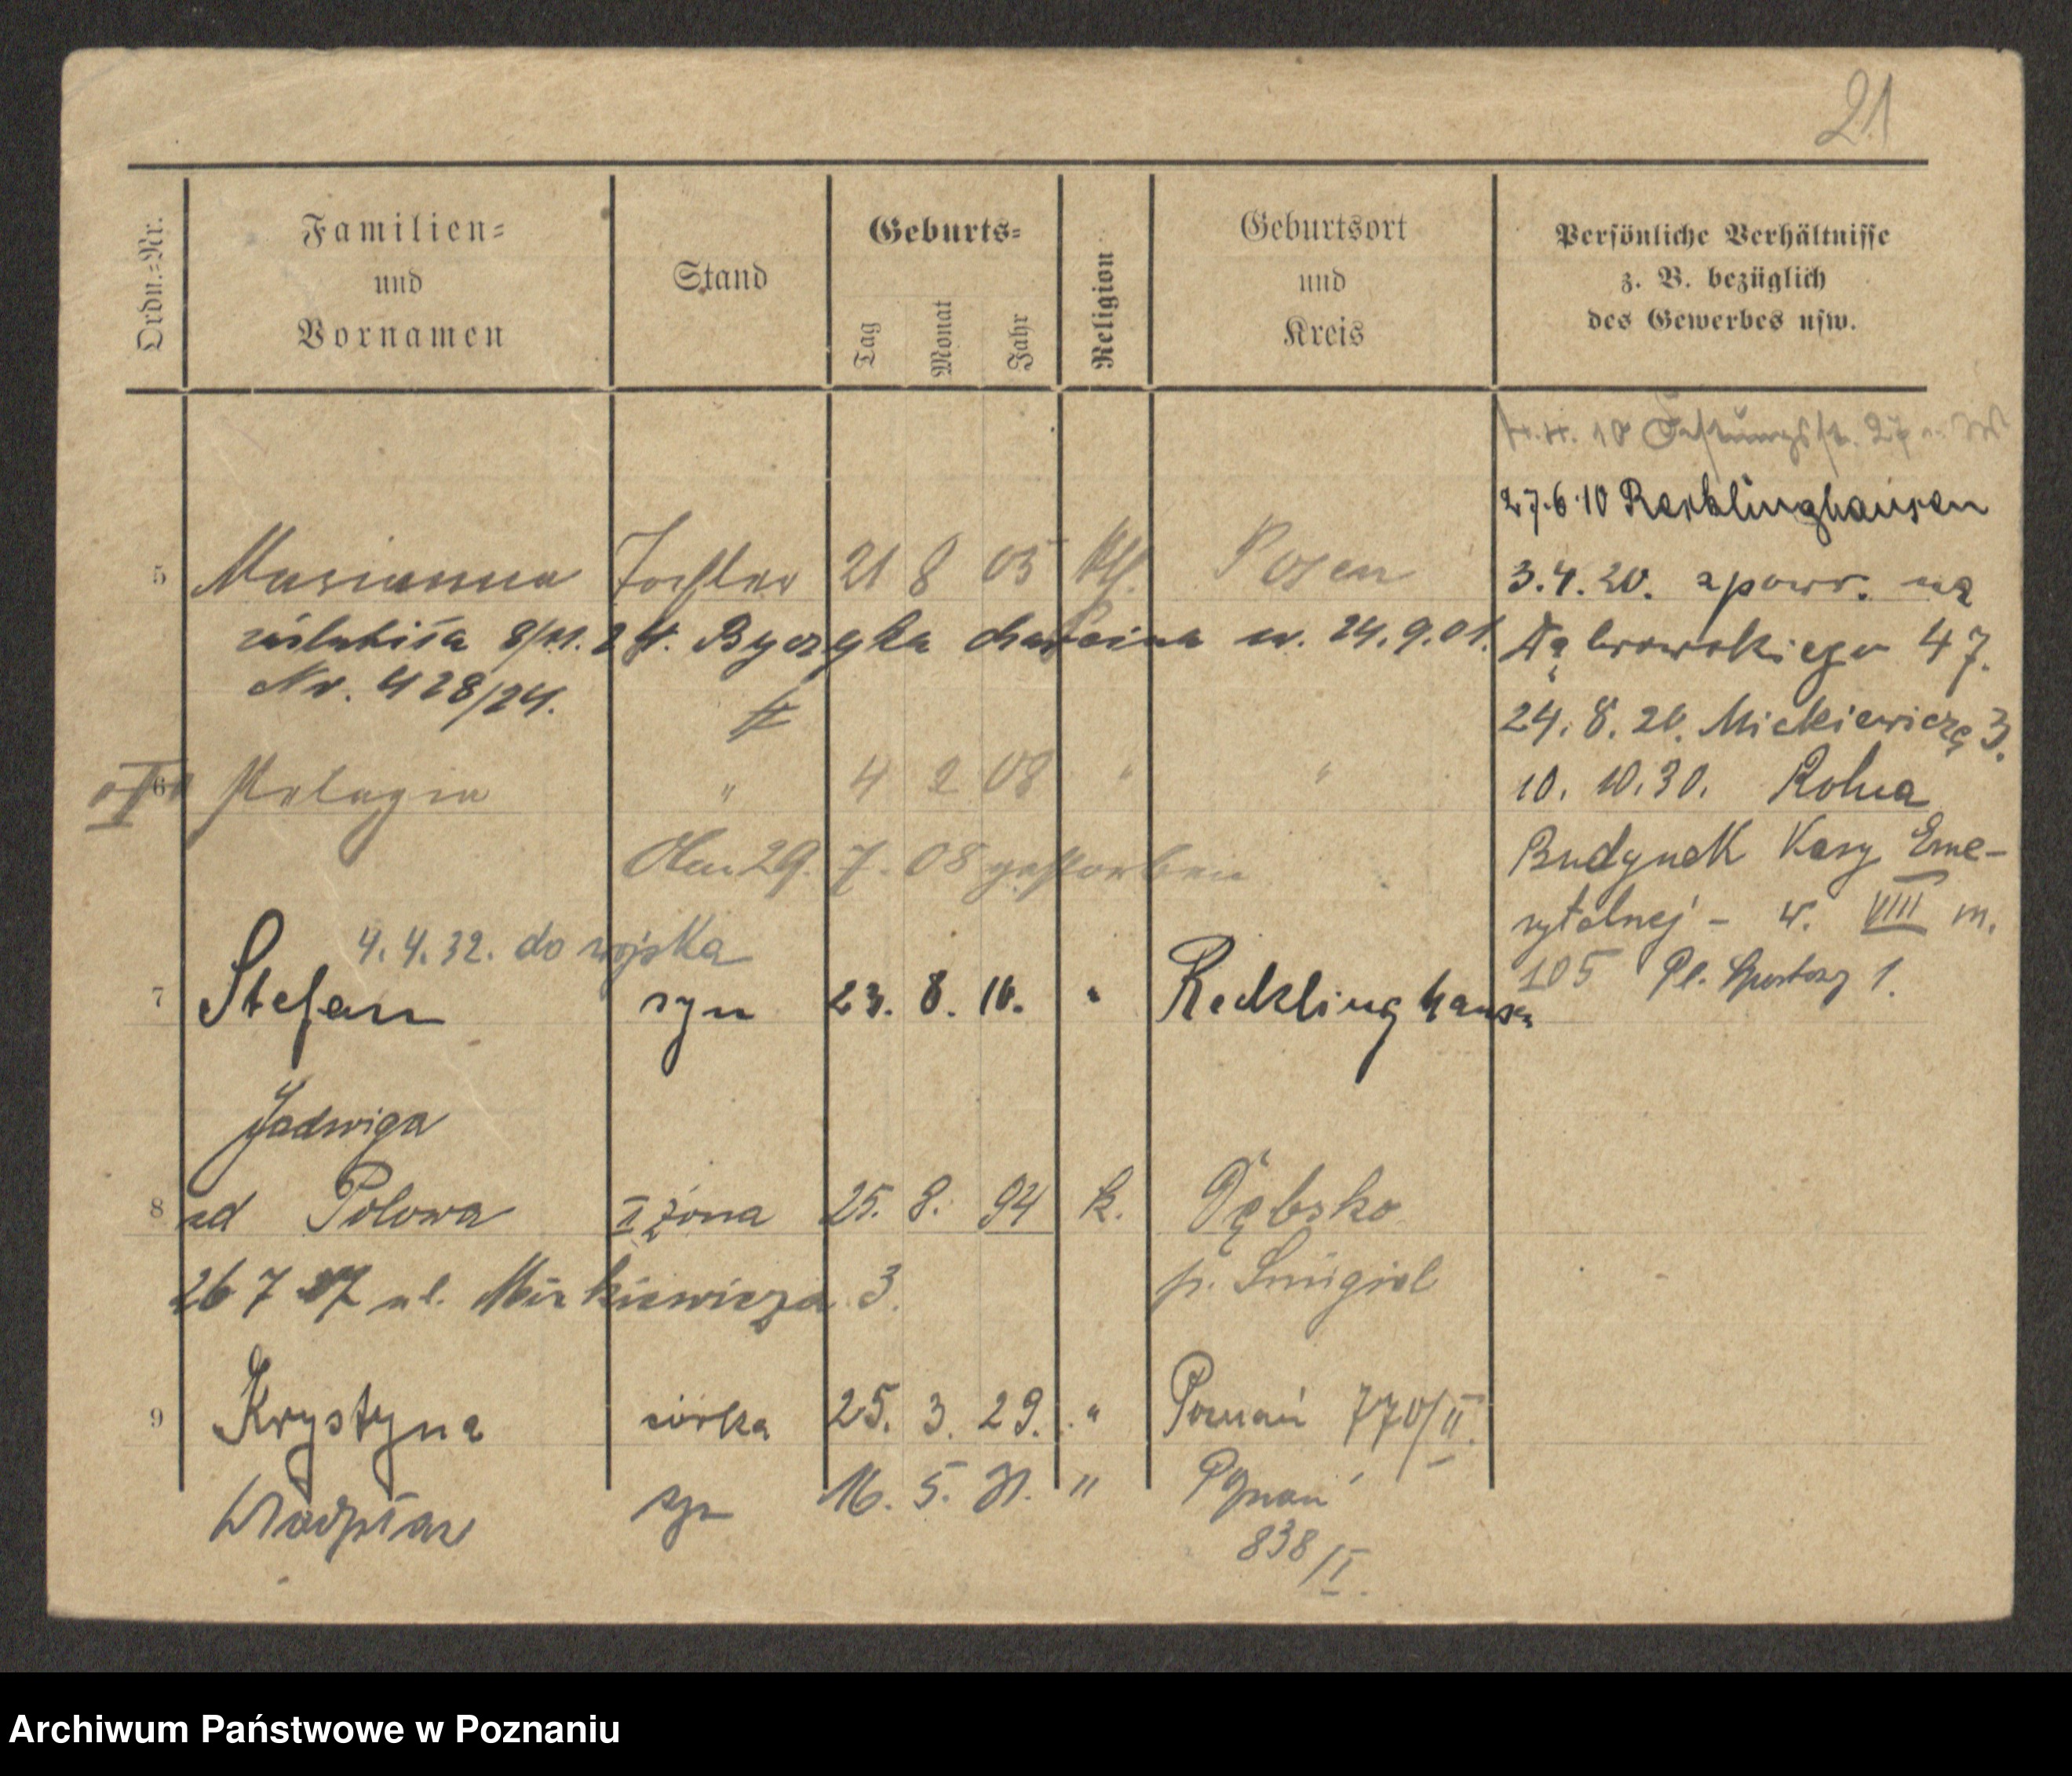 21
Ordn.=Nr.
Familien=
und
Vornamen
Stand
Geburts=
Tag
Monat
Jahr
Religion
Geburtsort
und
Kreis
Persönliche Verhältnisse
z. B. bezüglich
des Gewerbes usw.
27.6.10 Recklinghausen
5 Marianna Tochter 21 8 05 kth. Posen
3.4.20. z powr. na
zaślubiła 8/11.24. Byczyka Marcina u. 24.9.01.
Dąbrowskiego 47.
Nr. 428/24.
24.8.20. Mickiewicza 3.
6 Pelagia " 4 2 08 " "
10.10.30. Rolna
Am 29. 7. 08 gestorben
Budynek Kasy Eme-
rytalnej - w. VIII m.
105 Pl. Sportowy 1.
4.4.32. do wojska
7 Stefan syn 23. 8. 10. " Recklinghausen
Jadwiga
8 zd Polowa II żona 25. 8. 94 k. Dębsko
p. Śmigiel
26 7 27 ul. Mickiewicza 3.
9 Krystyna córka 25. 3. 29. " Poznań 770/II.
syn 16. 5. 31. " Poznań
838/I.